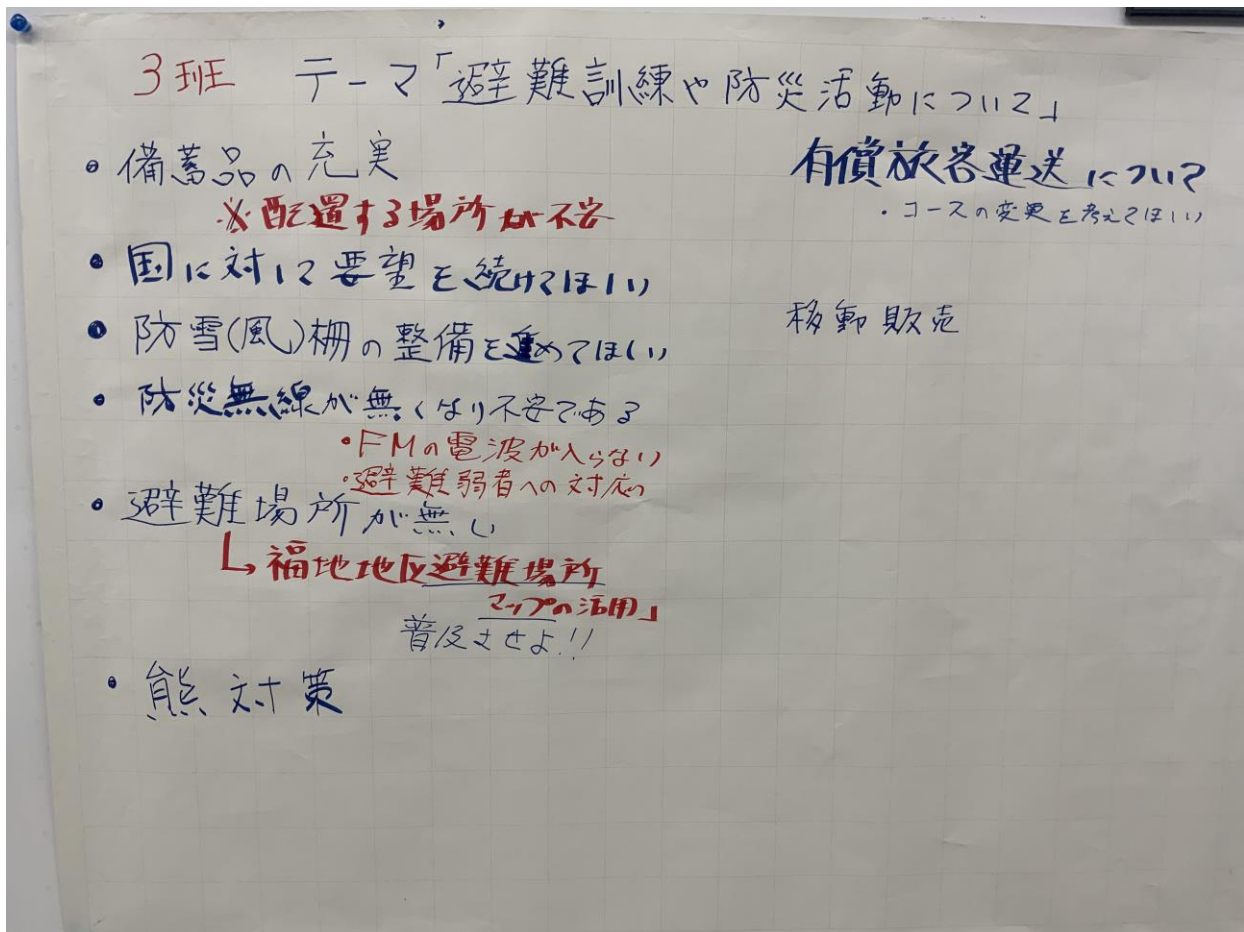 3班 テーマ「避難訓練や防災活動について」
・備蓄品の充実
※配置する場所が不安
・国に対して要望を続けてほしい
・防雪(風)柵の整備を進めてほしい
・防災無線が無くなり不安である
・FMの電波が入らない
・避難弱者への対応
・避難場所が無い
↳福地地区避難場所
マップの活用」
普及させよ!!
・熊対策
有償旅客運送について
・コースの変更を考えてほしい
移動販売